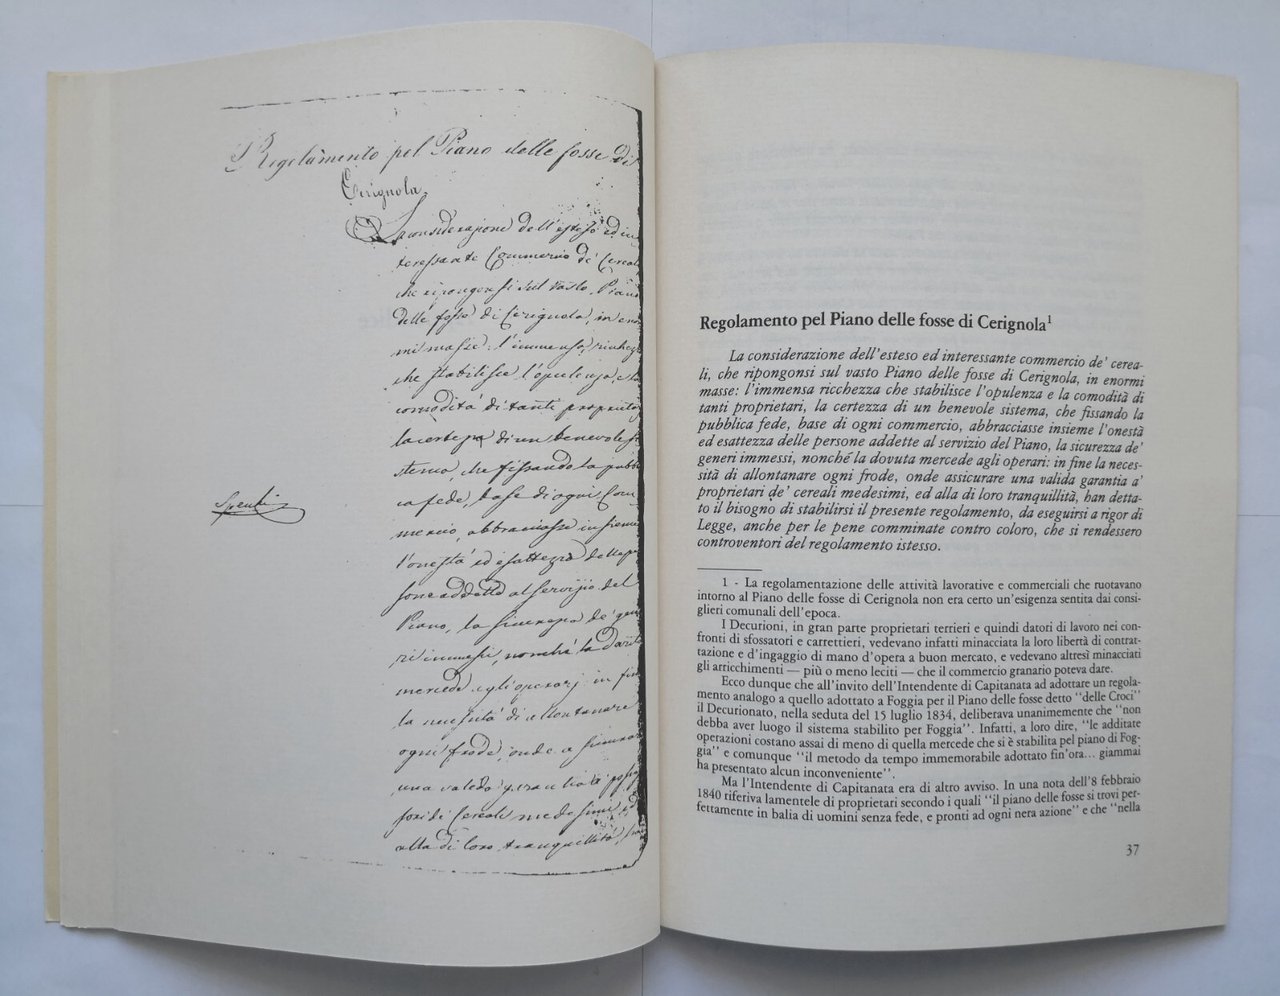 Regolamento pel Piano delle fosse di
Cerignola
La considerazione dell'esteso ed in
teressante Commercio de' Cereali
che ripongonsi sul vasto Piano
delle fosse di Cerignola, in enor
mi masse: l'immensa ricchezza
che stabilisce l'opulenza, e la
comodità di tanti proprietarj
la certezza di un benevole si
stema, che fissando la pubbli
ca fede, base di ogni Com
mercio, abbracciasse insieme
l'onestà ed esattezza delle per
sone addette al servizio del
Piano, la sicurezza de' gene
ri immessi, nonchè la dovuta
mercede agli operarj: in fine
la necessità di allontanare
ogni frode, onde assicurare
una valida
di Cereali medesimi, ed
alla di loro tranquillità,
Regolamento pel Piano delle fosse di Cerignola1
La considerazione dell'esteso ed interessante commercio de' cerea-
li, che ripongonsi sul vasto Piano delle fosse di Cerignola, in enormi
masse: l'immensa ricchezza che stabilisce l'opulenza e la comodità di
tanti proprietari, la certezza di un benevole sistema, che fissando la
pubblica fede, base di ogni commercio, abbracciasse insieme l'onestà
ed esattezza delle persone addette al servizio del Piano, la sicurezza de'
generi immessi, nonché la dovuta mercede agli operari: in fine la neces-
sità di allontanare ogni frode, onde assicurare una valida garantia a'
proprietari de' cereali medesimi, ed alla di loro tranquillità, han detta-
to il bisogno di stabilirsi il presente regolamento, da eseguirsi a rigor di
Legge, anche per le pene comminate contro coloro, che si rendessero
controventori del regolamento istesso.
1 - La regolamentazione delle attività lavorative e commerciali che ruotavano
intorno al Piano delle fosse di Cerignola non era certo un'esigenza sentita dai consi-
glieri comunali dell'epoca.
I Decurioni, in gran parte proprietari terrieri e quindi datori di lavoro nei con-
fronti di sfossatori e carrettieri, vedevano infatti minacciata la loro libertà di contrat-
tazione e d'ingaggio di mano d'opera a buon mercato, e vedevano altresì minacciati
gli articchimenti — più o meno leciti — che il commercio granario poteva dare.
Ecco dunque che all'invito dell'Intendente di Capitanata ad adottare un regola-
mento analogo a quello adottato a Foggia per il Piano delle fosse detto "delle Croci"
il Decurionato, nella seduta del 15 luglio 1834, deliberava unanimemente che "non
debba aver luogo il sistema stabilito per Foggia". Infatti, a loro dire, "le additate
operazioni costano assai di meno di quella mercede che si è stabilita pel piano di Fog-
gia" e comunque "il metodo da tempo immemorabile adottato fin'ora... giammai
ha presentato alcun inconveniente".
Ma l'Intendente di Capitanata era di altro avviso. In una nota dell'8 febbraio
1840 riferiva lamentele di proprietari secondo i quali "il piano delle fosse si trovi per-
fettamente in balia di uomini senza fede, e pronti ad ogni nera azione" e che "nella
37